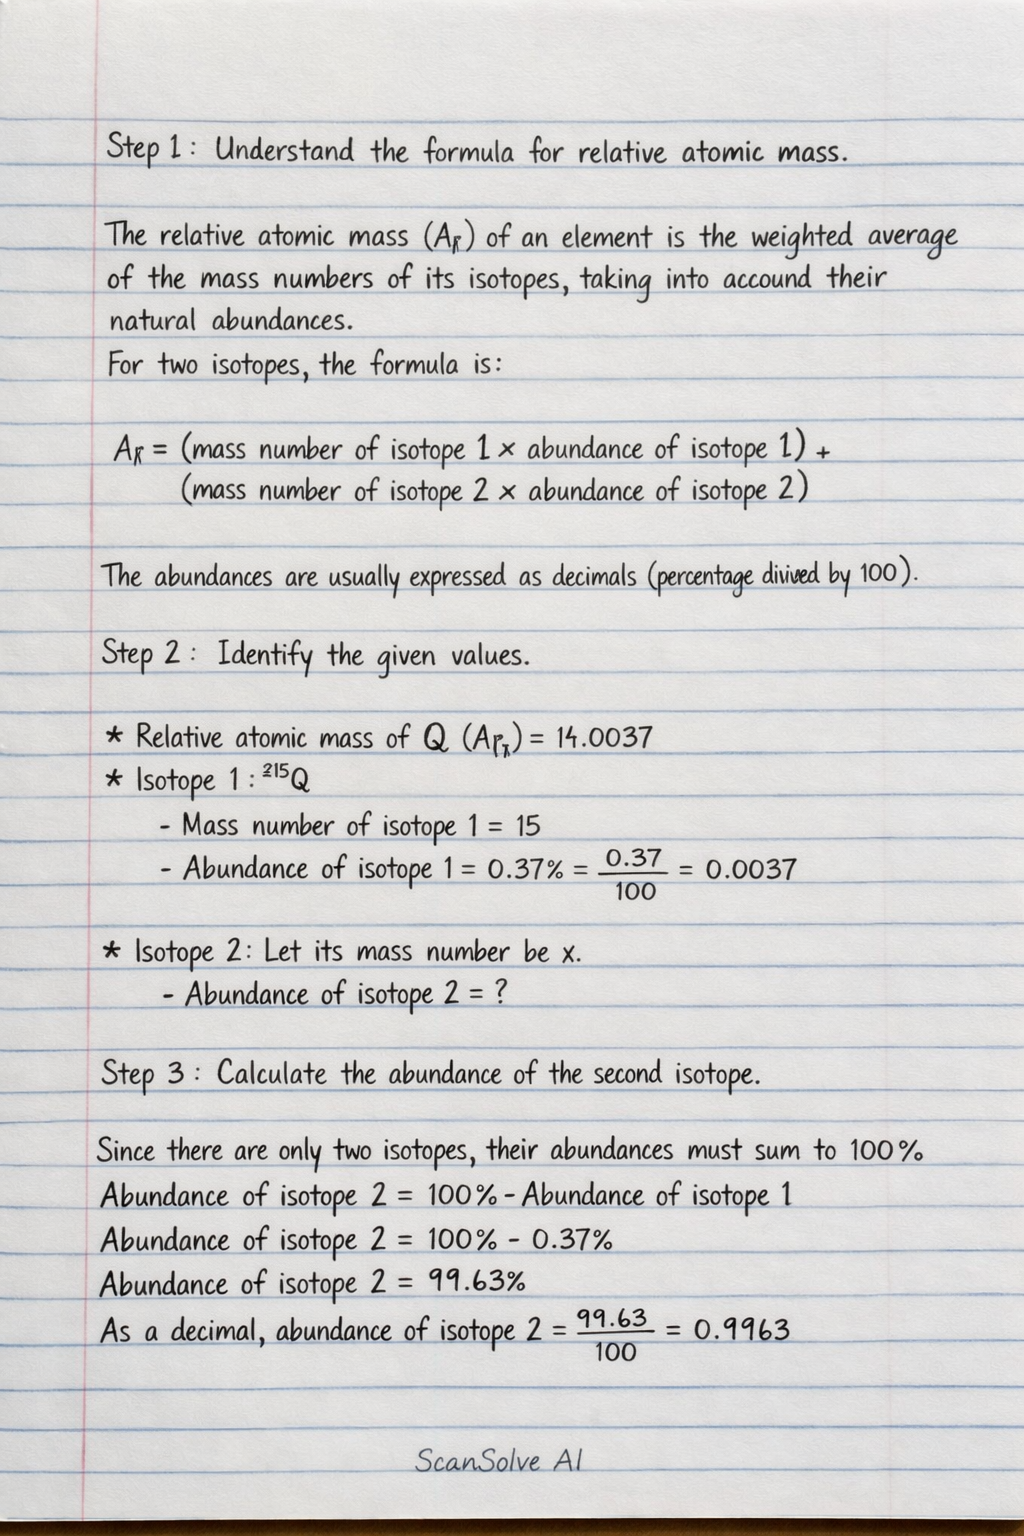 Step 1: Understand the formula for relative atomic mass.
The relative atomic mass (Aᵣ) of an element is the weighted average
of the mass numbers of its isotopes, taking into accound their
natural abundances.
For two isotopes, the formula is:
Aᵣ = (mass number of isotope 1 × abundance of isotope 1) +
(mass number of isotope 2 × abundance of isotope 2)
The abundances are usually expressed as decimals (percentage divived by 100).
Step 2: Identify the given values.
* Relative atomic mass of Q (Aᵣ) = 14.0037
* Isotope 1: ²¹⁵Q
- Mass number of isotope 1 = 15
- Abundance of isotope 1 = 0.37% = 0.37/100 = 0.0037
* Isotope 2: Let its mass number be x.
- Abundance of isotope 2 = ?
Step 3: Calculate the abundance of the second isotope.
Since there are only two isotopes, their abundances must sum to 100%
Abundance of isotope 2 = 100% - Abundance of isotope 1
Abundance of isotope 2 = 100% - 0.37%
Abundance of isotope 2 = 99.63%
As a decimal, abundance of isotope 2 = 99.63/100 = 0.9963
ScanSolve AI